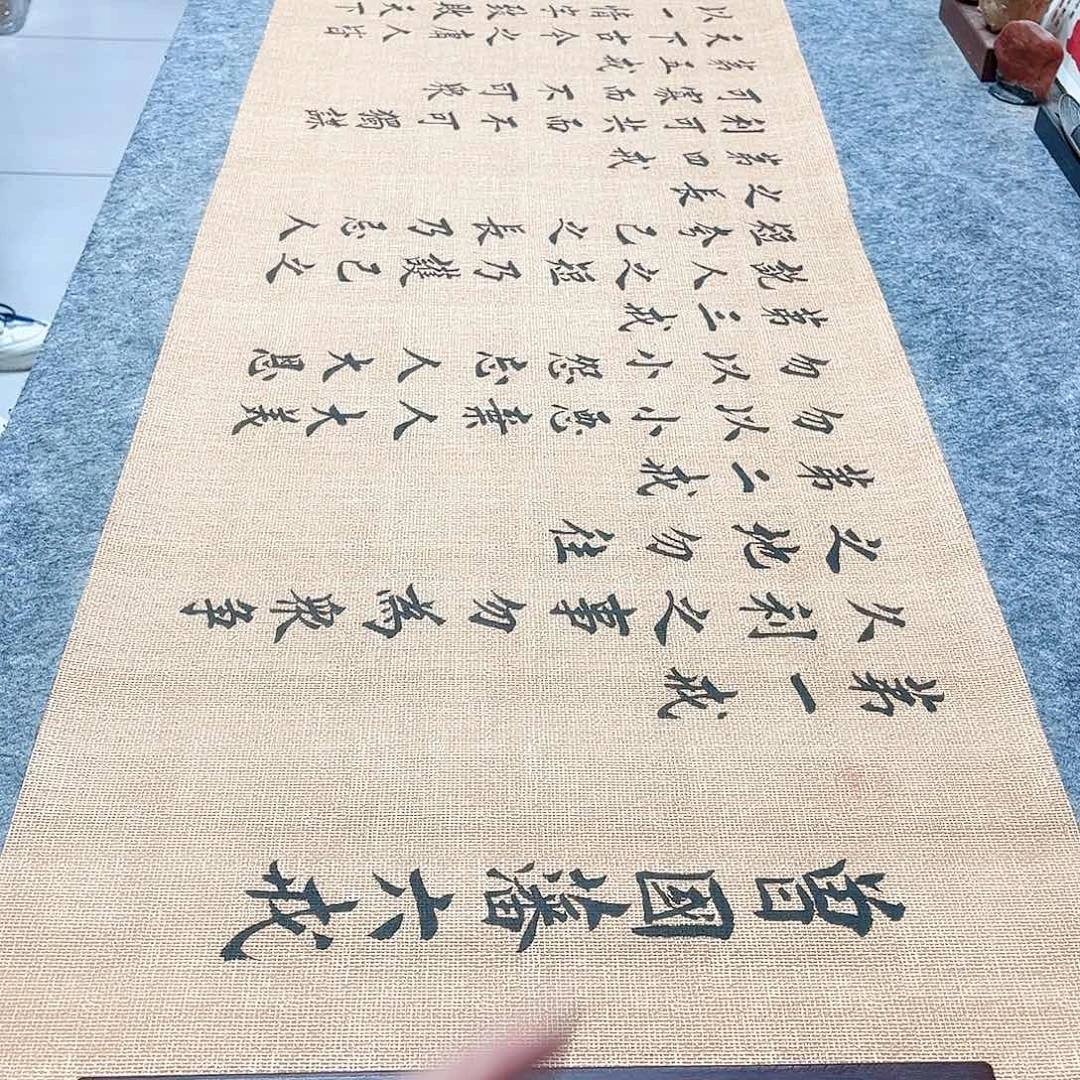 曾國藩六戒
第一戒
久利之事勿為眾爭
之地勿往
第二戒
勿以小惡棄人大義
勿以小怨忘人大恩
第三戒
說人之短乃護己之
短夸己之長乃忌人
之長
第四戒
利可共而不可獨謀
可寡而不可眾
第五戒
天下古今之庸人皆
以一惰字致敗天下